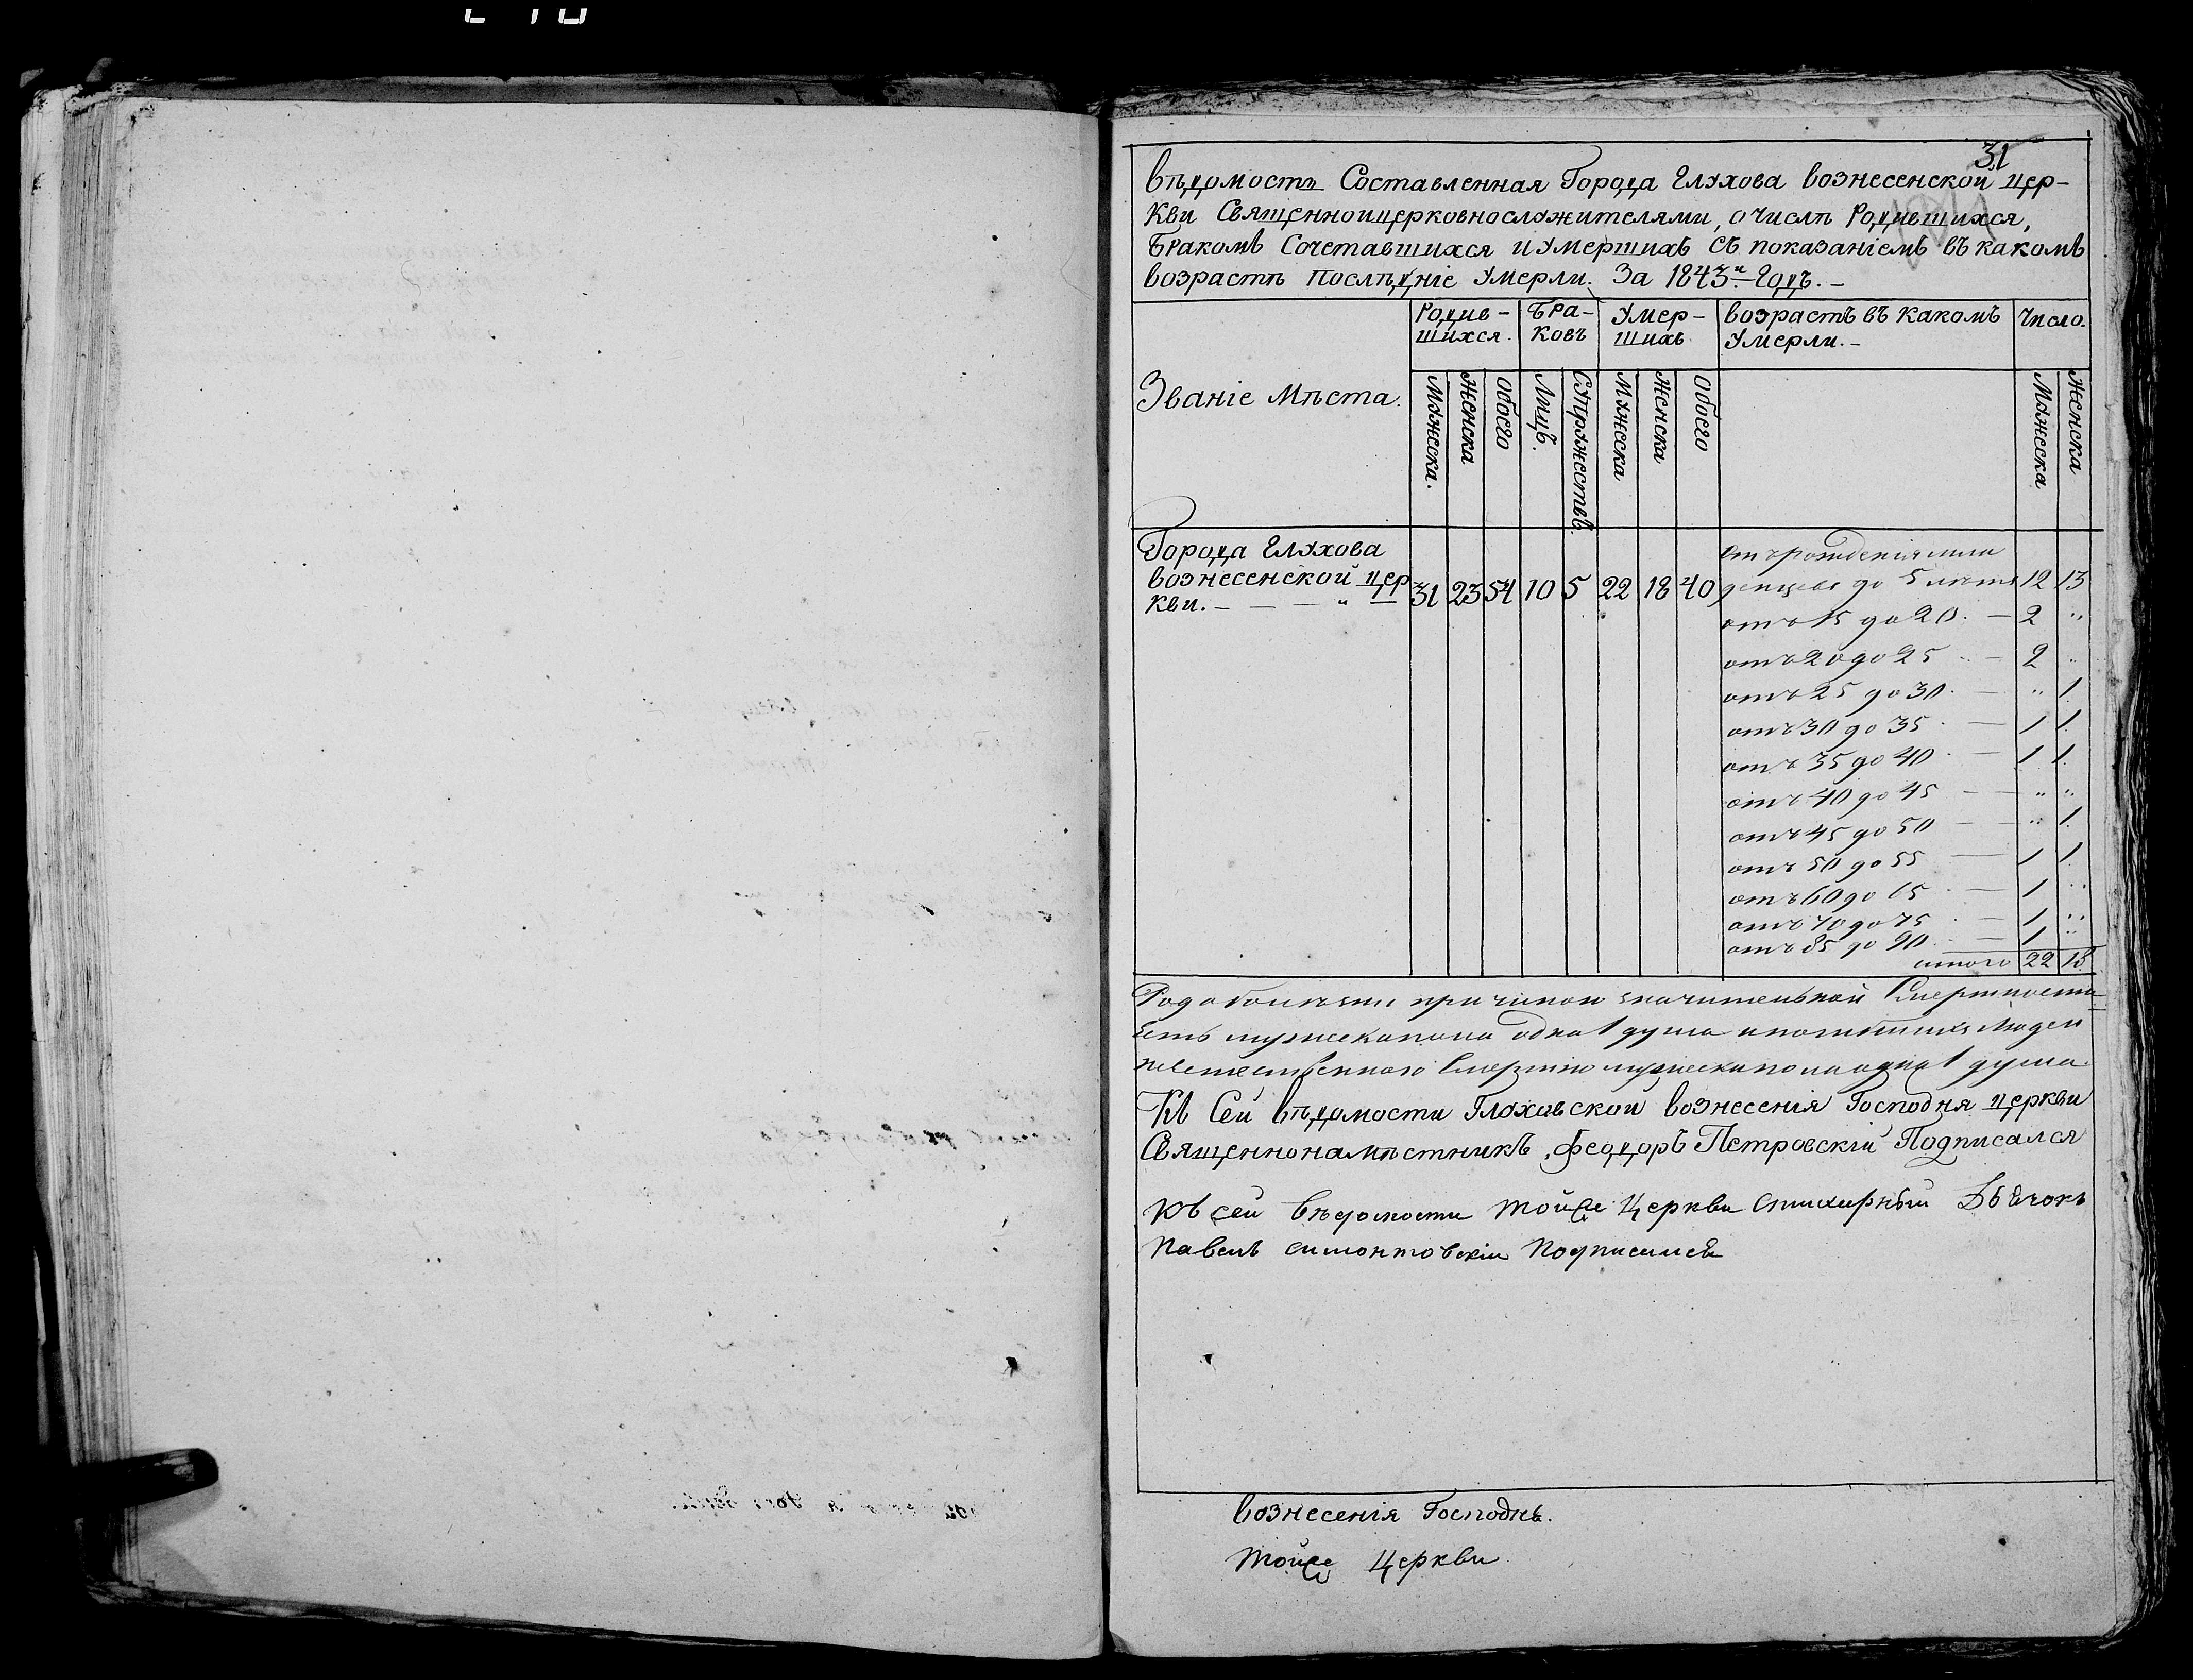 31
Вѣдомость Составленная Города Глухова вознесенской цер-
кви Священноицерковнослужителями, о числѣ Родившихся,
Бракомъ Сочетавшихся и Умершихъ съ показаніемъ въ какомъ
возрастѣ послѣдніе Умерли. За 1843й Годъ. –
Званіе Мѣста.
Родив-
шихся.
Бра-
ковъ
Умер-
шихъ
возрастъ въ какомъ
Умерли. –
Число.
Мужеска.
Женска
Обоего
Лицъ.
Супружествъ.
Мужеска
Женска
Обоего
Мужеска
Женска
Города Глухова
вознесенской цер
кви. – – – „ 31 23 54 10 5 22 18 40
Отъ рожденія мла
денцевъ до 5 лѣтъ 12 13
отъ 15 до 20. – 2 „
отъ 20 до 25 – 2 „
отъ 25 до 30. – „ 1
отъ 30 до 35 – 1 1
отъ 35 до 40 – 1 1
отъ 40 до 45 – „ „
отъ 45 до 50 – „ 1
отъ 50 до 55 – 1 1
отъ 60 до 65 – 1 „
отъ 70 до 75 – 1 „
отъ 85 до 90 – 1 „
итого 22 18
Рода болѣзни причиною значительной Смертности
есть мужеска пола одна 1 душа и погибшихъ людей
неестественною Смертію мужеска пола одна 1 душа
Къ Сей вѣдомости Глуховской вознесенія Господня церкви
Священнонамѣстникъ Феодоръ Петровскій Подписался
Къ сей вѣдомости тойже Церкви стихирный Дьячокъ
Павелъ Симонтовскій Подписался
вознесенія Господня.
тойже Церкви